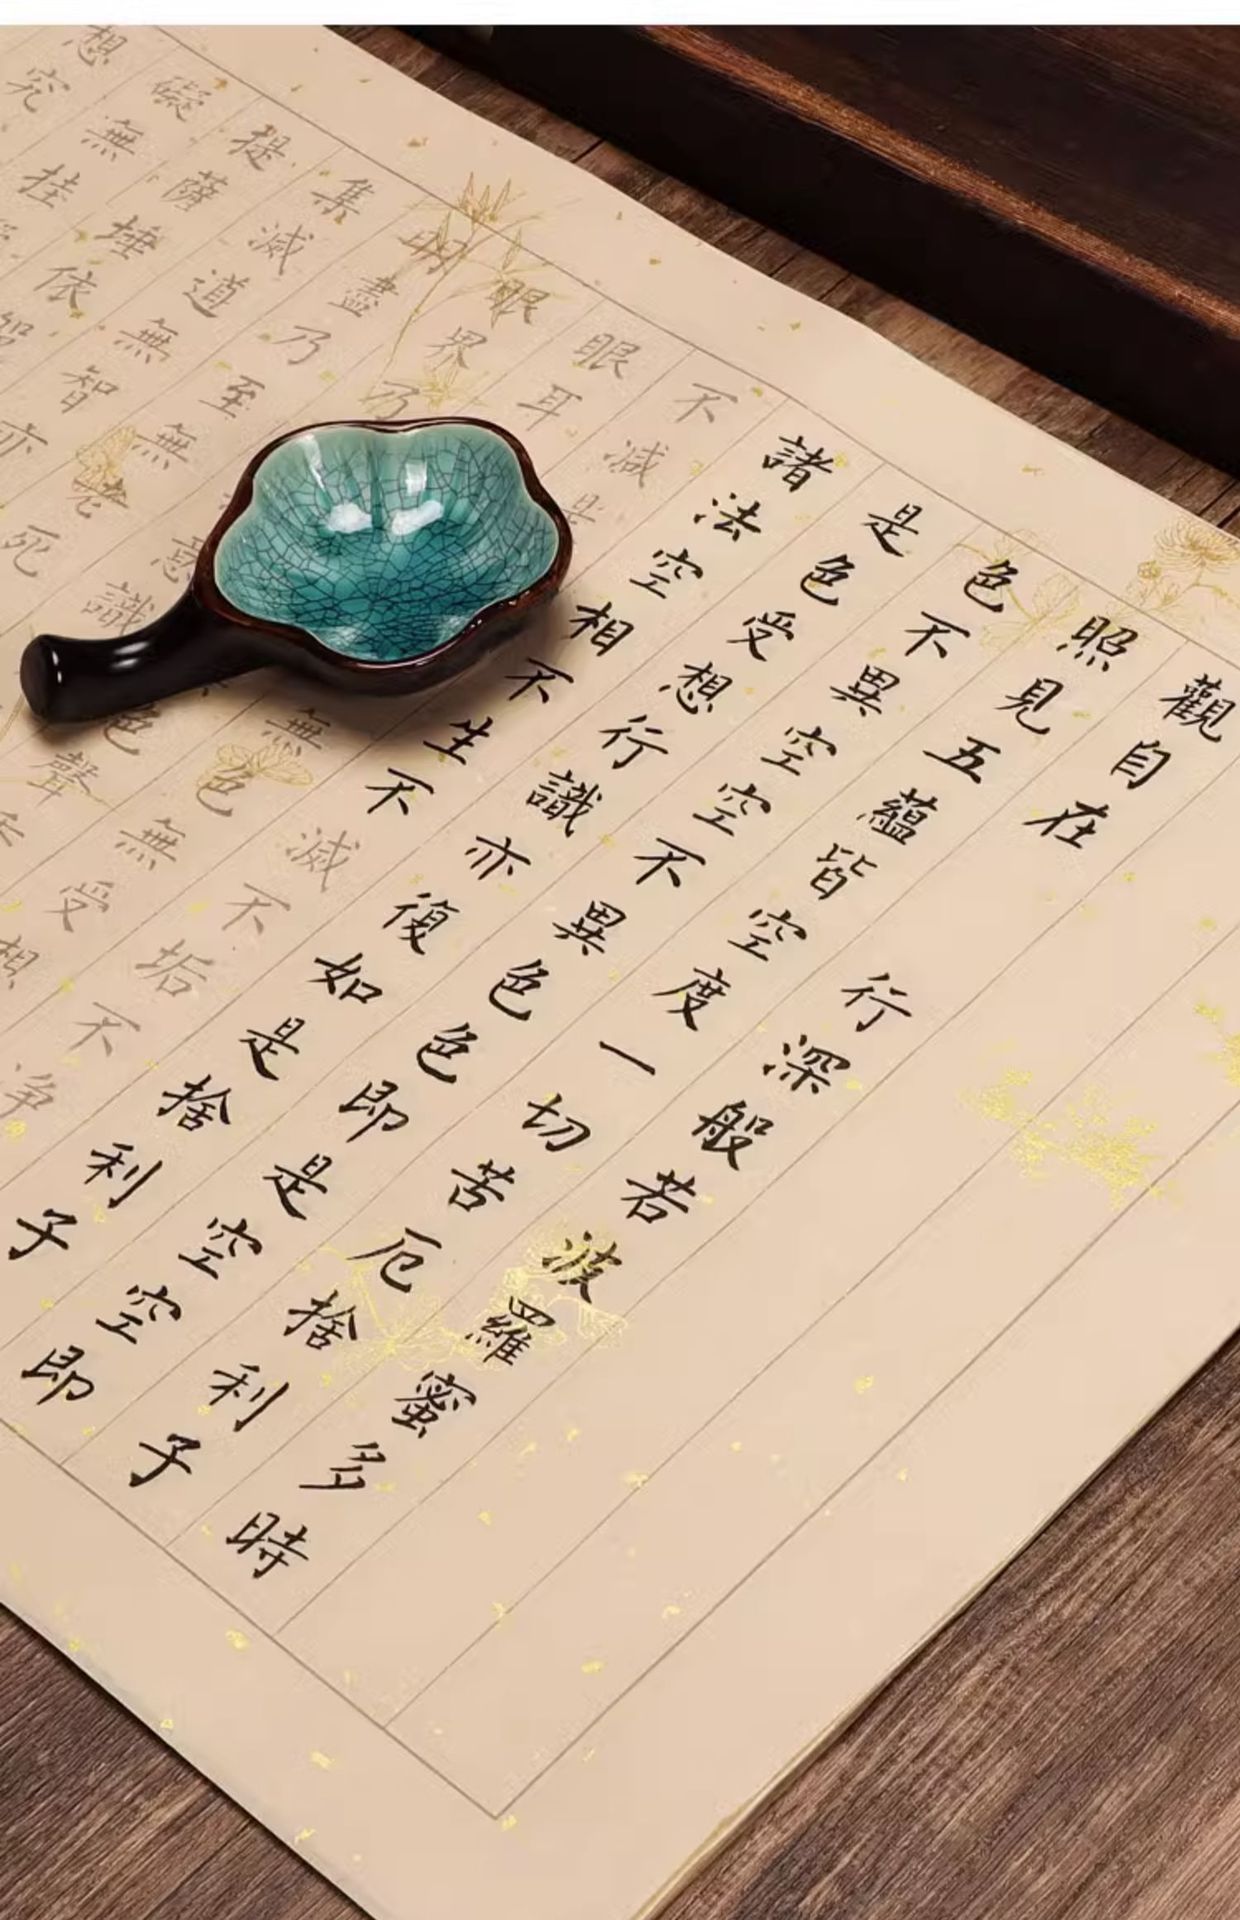 觀自在 行深般若波羅蜜多時
照見五蘊皆空度一切苦厄捨利子
色不異空空不異色色即是空空即
是色受想行識亦復如是捨利子
諸法空相不生不滅不垢不净
不減是 無色無受想
眼耳 色聲
眼界乃 意識
明盡乃至無老死
集滅道無智亦
提薩埵依
礙無挂
想究